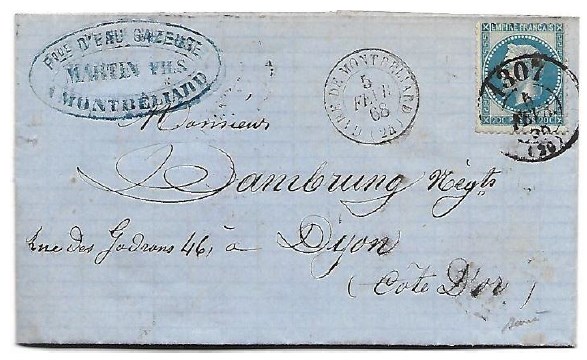 FQUE D'EAU GAZEUSE
MARTIN FILS
A MONTBÉLIARD
GARE DE MONTBÉLIARD
5
FEVR
68
(24)
EMPIRE FRANÇAIS
1307
68
Monsieur
Dambrung Négts
Rue des Godrans 46, à Dijon
(Côte D'or)